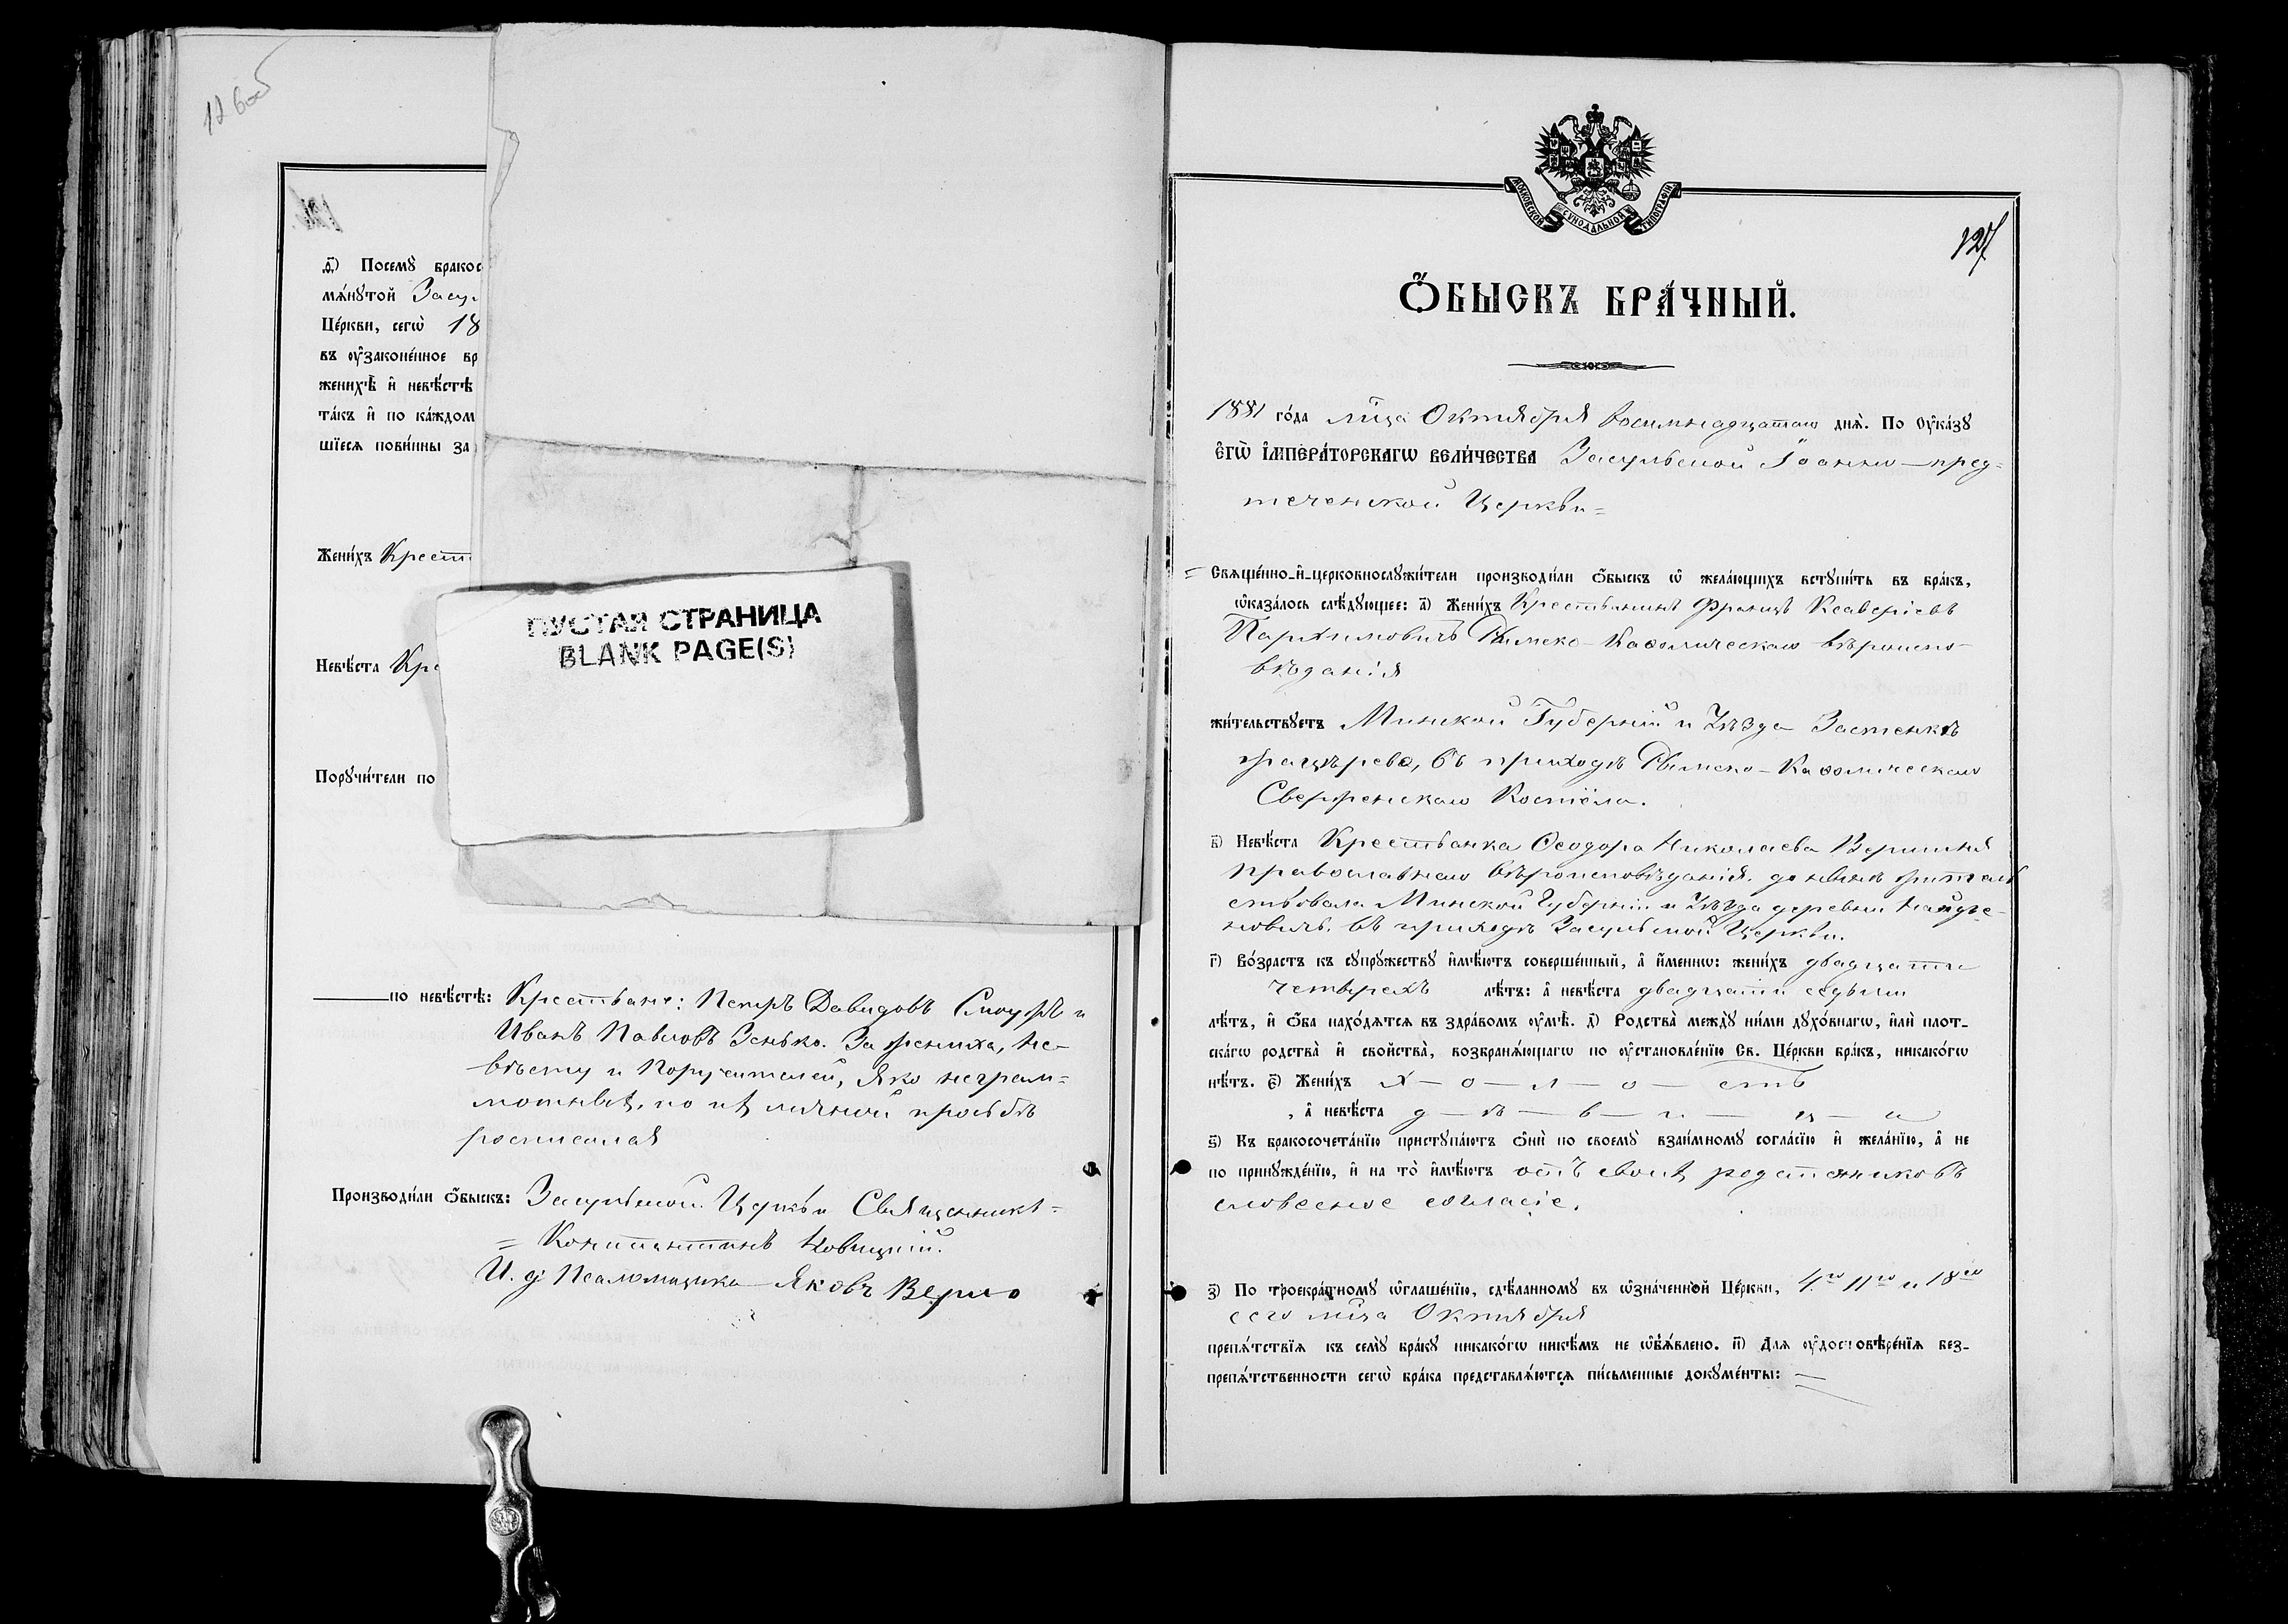 12 боб
д҃) Посемꙋ̀ бракос
мѧ́нꙋтой Засу
Це́ркви, сегѡ̀ 18
въ ᲂу҆законе́нное вр
женихѣ̀ и҆ невѣ́стѣ
та́къ и҆ по ка́ждом
шїесѧ пови́нны за
Жени́хъ Крест
Невѣ́ста Кре
Порꙋчи́тели по
ПУСТАЯ СТРАНИЦА
BLANK PAGE(S)
по невѣ́стѣ: Крестьяне: Петръ Давидовъ и
Иванъ Павловъ Зенько. За жениха, не-
вѣсту и Поручителей, яко неграм=
мотныхъ, по ихъ личной просьбѣ
росписался
Производи́ли ѻ҆́быскъ: Засульской Церкви Священникъ =
= Константинъ Новицкій.
И. д. Псаломщика Яковъ
МОСКОВСКОЙ СѴНОДАЛЬНОЙ ТИПОГРАФІИ
127
Ѻ҆́БЫСКЪ БРА́ЧНЫЙ.
1881 го́да мца Октября восимнадцатаго днѧ̀. По Оу҆ка́зꙋ
Є҆гѡ̀ І҆мпера́торскагѡ вели́чества Засульской Іоанно-пред=
теченской Церкви=
= Свѧще́нно-и҆-церковнослꙋжи́тели производи́ли ѻ҆́быскъ ѡ҆ жела́ющихъ встꙋпи́ть въ бра́къ,
ѡ҆каза́лось слѣ́дꙋющее: а҃) Жени́хъ Крестьянинъ Францъ Ксаверіевъ
Пархимовичъ Римско-Католическаго вѣроиспо-
вѣданія
жи́тельствꙋетъ Минской Губерніи и Уѣзда Застенкѣ
въ приходѣ Римско-Католическаго
Сверженскаго Костёла.
в҃) Невѣ́ста Крестьянка Ѳеодора Николаева
православнаго вѣроисповѣданія. до нынѣ житель
ствовала Минской Губерніи и Уѣзда деревни Найде-
новичъ. въ приходѣ Засульской Церкви.
г҃) Во́зрастъ къ сꙋпрꙋ́жествꙋ и҆мѣ́ютъ соверше́нный, а҆ и҆́меннѡ: жени́хъ двадцати
четырехъ лѣ́тъ: а҆ невѣ́ста двадцати седьми
лѣ́тъ, и҆ ѻ҆́ба нахо́дѧтсѧ въ здра́вомъ ᲂу҆мѣ̀. д҃) Родства̀ междꙋ̀ ни́ми дꙋхо́внагѡ, и҆лѝ плот-
ска́гѡ родства̀ и҆ свойства̀, возбранѧ́ющагѡ по ᲂу҆становле́нїю Св. Це́ркви бра́къ, никако́гѡ
нѣ́тъ. є҃) Жени́хъ х — о — л — о — стъ
, а҆ невѣ́ста д — ѣ — в — и — ц — а
ѕ҃) Къ бракосочета́нїю пристꙋпа́ютъ ѻ҆нѝ по своемꙋ̀ взаи́мномꙋ согла́сїю и҆ жела́нїю, а҆ не
по принꙋжде́нїю, и҆ на то̀ и҆мѣ́ютъ отъ своихъ родственниковъ
словесное согласіе.
з҃) По троекра́тномꙋ ѡ҆глаше́нїю, сдѣ́ланномꙋ въ ѡ҆зна́ченной Це́ркви, 4го 11го и 18го
сего мца Октября
препѧ́тствїѧ къ семꙋ̀ бра́кꙋ никако́гѡ никѣ́мъ не ѡ҆б̾ѧ́влено. и҃) Для ᲂу҆достовѣре́нїѧ без-
препѧ́тственности сегѡ̀ бра́ка представлѧ́ютсѧ пи́сьменные докꙋме́нты: =